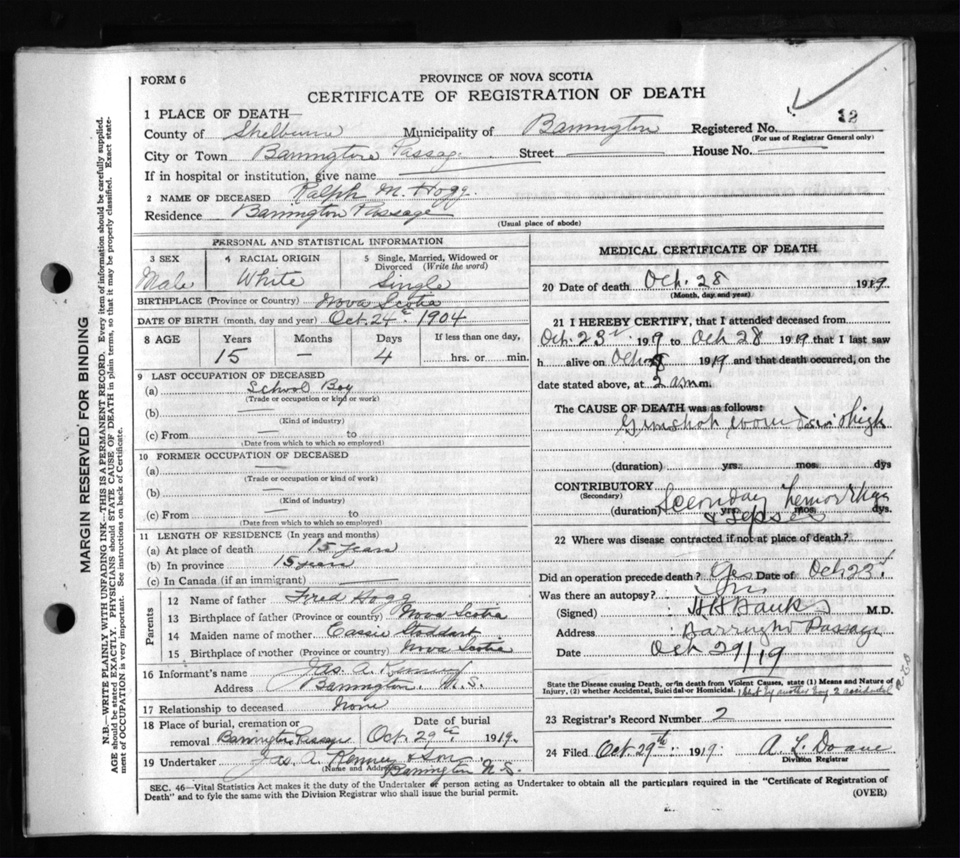 FORM 6
PROVINCE OF NOVA SCOTIA
CERTIFICATE OF REGISTRATION OF DEATH
1 PLACE OF DEATH
County of Shelburne Municipality of Barrington Registered No. 12
(For use of Registrar General only)
City or Town Barrington Passage Street House No.
If in hospital or institution, give name
2 NAME OF DECEASED Ralph M. Hogg.
Residence Barrington Passage
(Usual place of abode)
MARGIN RESERVED FOR BINDING
N.B.—WRITE PLAINLY WITH UNFADING INK—THIS IS A PERMANENT RECORD. Every item of information should be carefully supplied.
AGE should be stated EXACTLY. PHYSICIANS should STATE CAUSE OF DEATH in plain terms, so that it may be properly classified. Exact state-
ment of OCCUPATION is very important. See instructions on back of Certificate.
PERSONAL AND STATISTICAL INFORMATION
3 SEX 4 RACIAL ORIGIN 5 Single, Married, Widowed or
Divorced (Write the word)
Male White Single
BIRTHPLACE (Province or Country) Nova Scotia
DATE OF BIRTH (month, day and year) Oct. 24th 1904
8 AGE Years Months Days If less than one day,
15 — 4 hrs. or min.
9 LAST OCCUPATION OF DECEASED
(a) School Boy
(Trade or occupation or kind or work)
(b) —
(Kind of industry)
(c) From — to
(Date from which to which so employed)
10 FORMER OCCUPATION OF DECEASED
(a) —
(Trade or occupation or kind of work)
(b) —
(Kind of industry)
(c) From — to
(Date from which to which so employed)
11 LENGTH OF RESIDENCE (In years and months)
(a) At place of death 15 years
(b) In province 15 years
(c) In Canada (if an immigrant)
Parents
12 Name of father Fred Hogg
13 Birthplace of father (Province or country) Nova Scotia
14 Maiden name of mother Cassie Stoddart
15 Birthplace of mother (Province or country) Nova Scotia
16 Informant's name Jas. A. Kenney
Address Barrington, N.S.
17 Relationship to deceased None
18 Place of burial, cremation or Date of burial
removal Barrington Passage Oct. 29th 1919.
19 Undertaker Jas. A. Kenney & Son
(Name and Address) Barrington N.S.
MEDICAL CERTIFICATE OF DEATH
20 Date of death Oct. 28 1919
(Month, day and year)
21 I HEREBY CERTIFY, that I attended deceased from
Oct. 23 1919 to Oct 28 1919 that I last saw
h alive on Oct 1919 and that death occurred, on the
date stated above, at 2 a m.
The CAUSE OF DEATH was as follows:
Gunshot wound in thigh
(duration) yrs. mos. dys
CONTRIBUTORY Secondary hemorrhage
(Secondary)
(duration) yrs. mos. dys.
& Sepsis
22 Where was disease contracted if not at place of death?
Did an operation precede death? Yes Date of Oct 23
Was there an autopsy?
(Signed) H H Banks M.D.
Address Barrington Passage
Date Oct 29/19
State the Disease causing Death, or in death from Violent Causes, state (1) Means and Nature of
Injury, (2) whether Accidental, Suicidal or Homicidal. 1 Shot by another boy 2 accidental
23 Registrar's Record Number 2
24 Filed Oct. 29th 1919 A. L. Doane
Division Registrar
SEC. 46—Vital Statistics Act makes it the duty of the Undertaker or person acting as Undertaker to obtain all the particulars required in the "Certificate of Registration of
Death" and to fyle the same with the Division Registrar who shall issue the burial permit. (OVER)